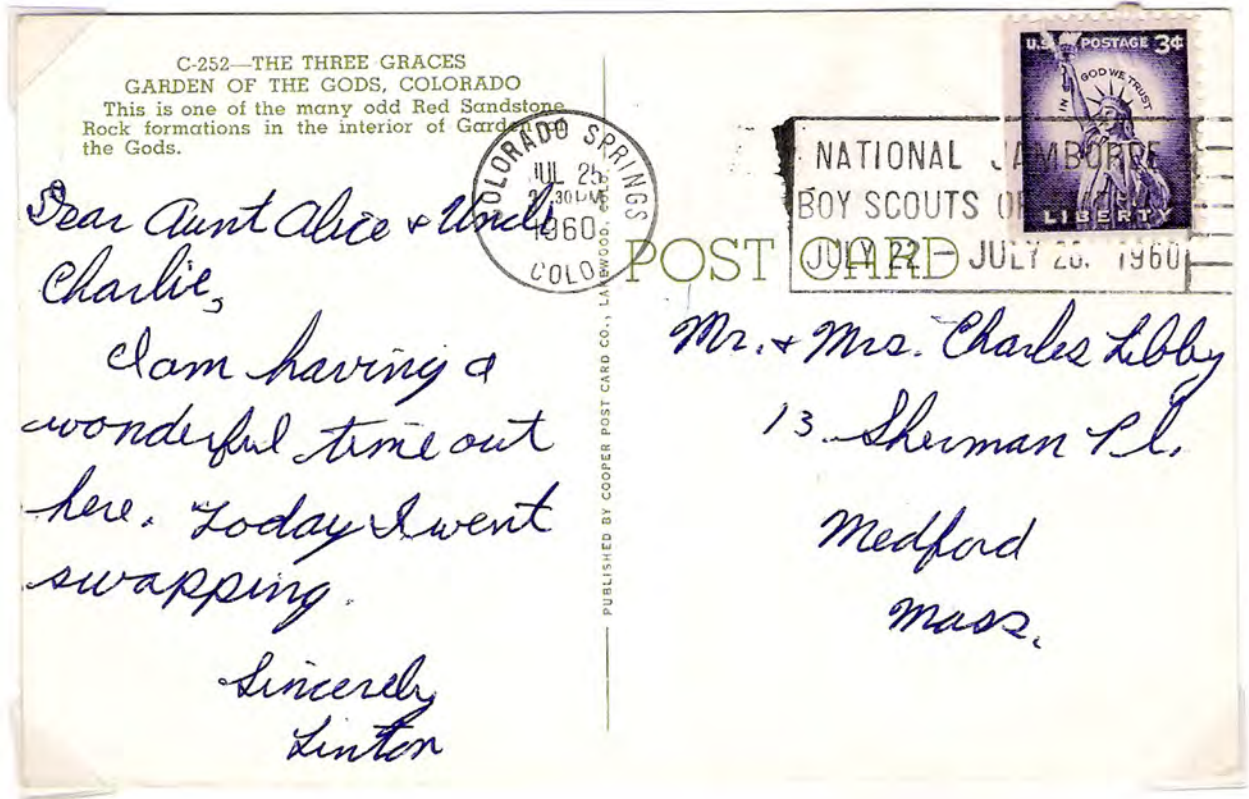 C-252—THE THREE GRACES
GARDEN OF THE GODS, COLORADO
This is one of the many odd Red Sandstone
Rock formations in the interior of Garden of
the Gods.
Dear Aunt Alice + Uncle
Charlie,
I am having a
wonderful time out
here. Today I went
swapping.
Sincerely
Linton
PUBLISHED BY COOPER POST CARD CO., LAKEWOOD, COLO.
COLORADO SPRINGS
JUL 25
30 PM
1960
COLO
U.S. POSTAGE 3¢
IN GOD WE TRUST
LIBERTY
NATIONAL JAMBOREE
BOY SCOUTS OF
JULY 22 - JULY 28, 1960
POST CARD
Mr. + Mrs. Charles Libby
13 Sherman Pl.
Medford
Mass.